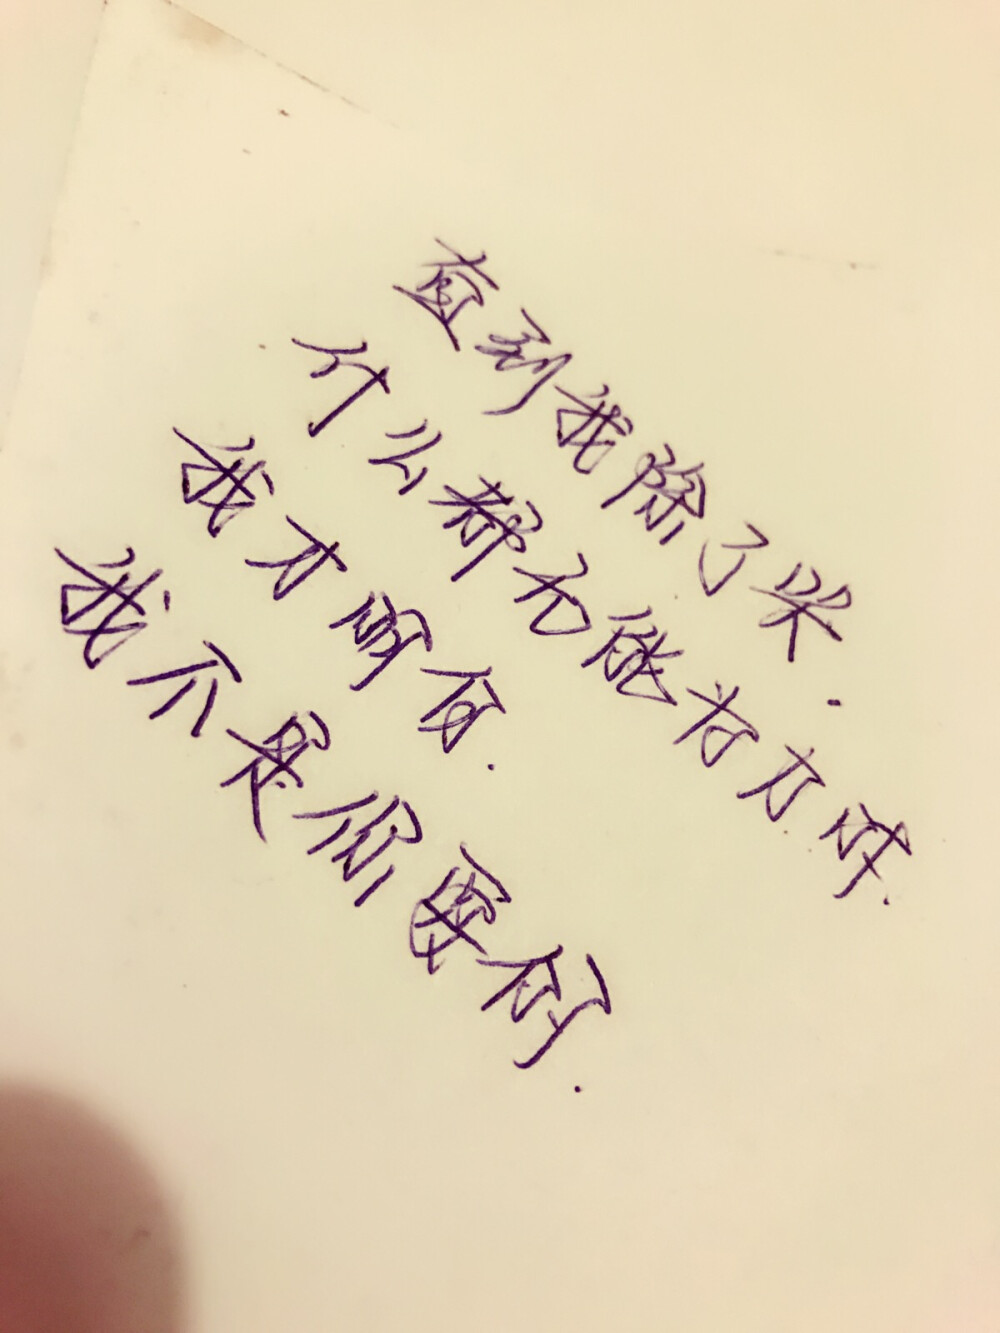 直到我除了哭.
什么都无能为力时.
我才明白.
我不是你要的.